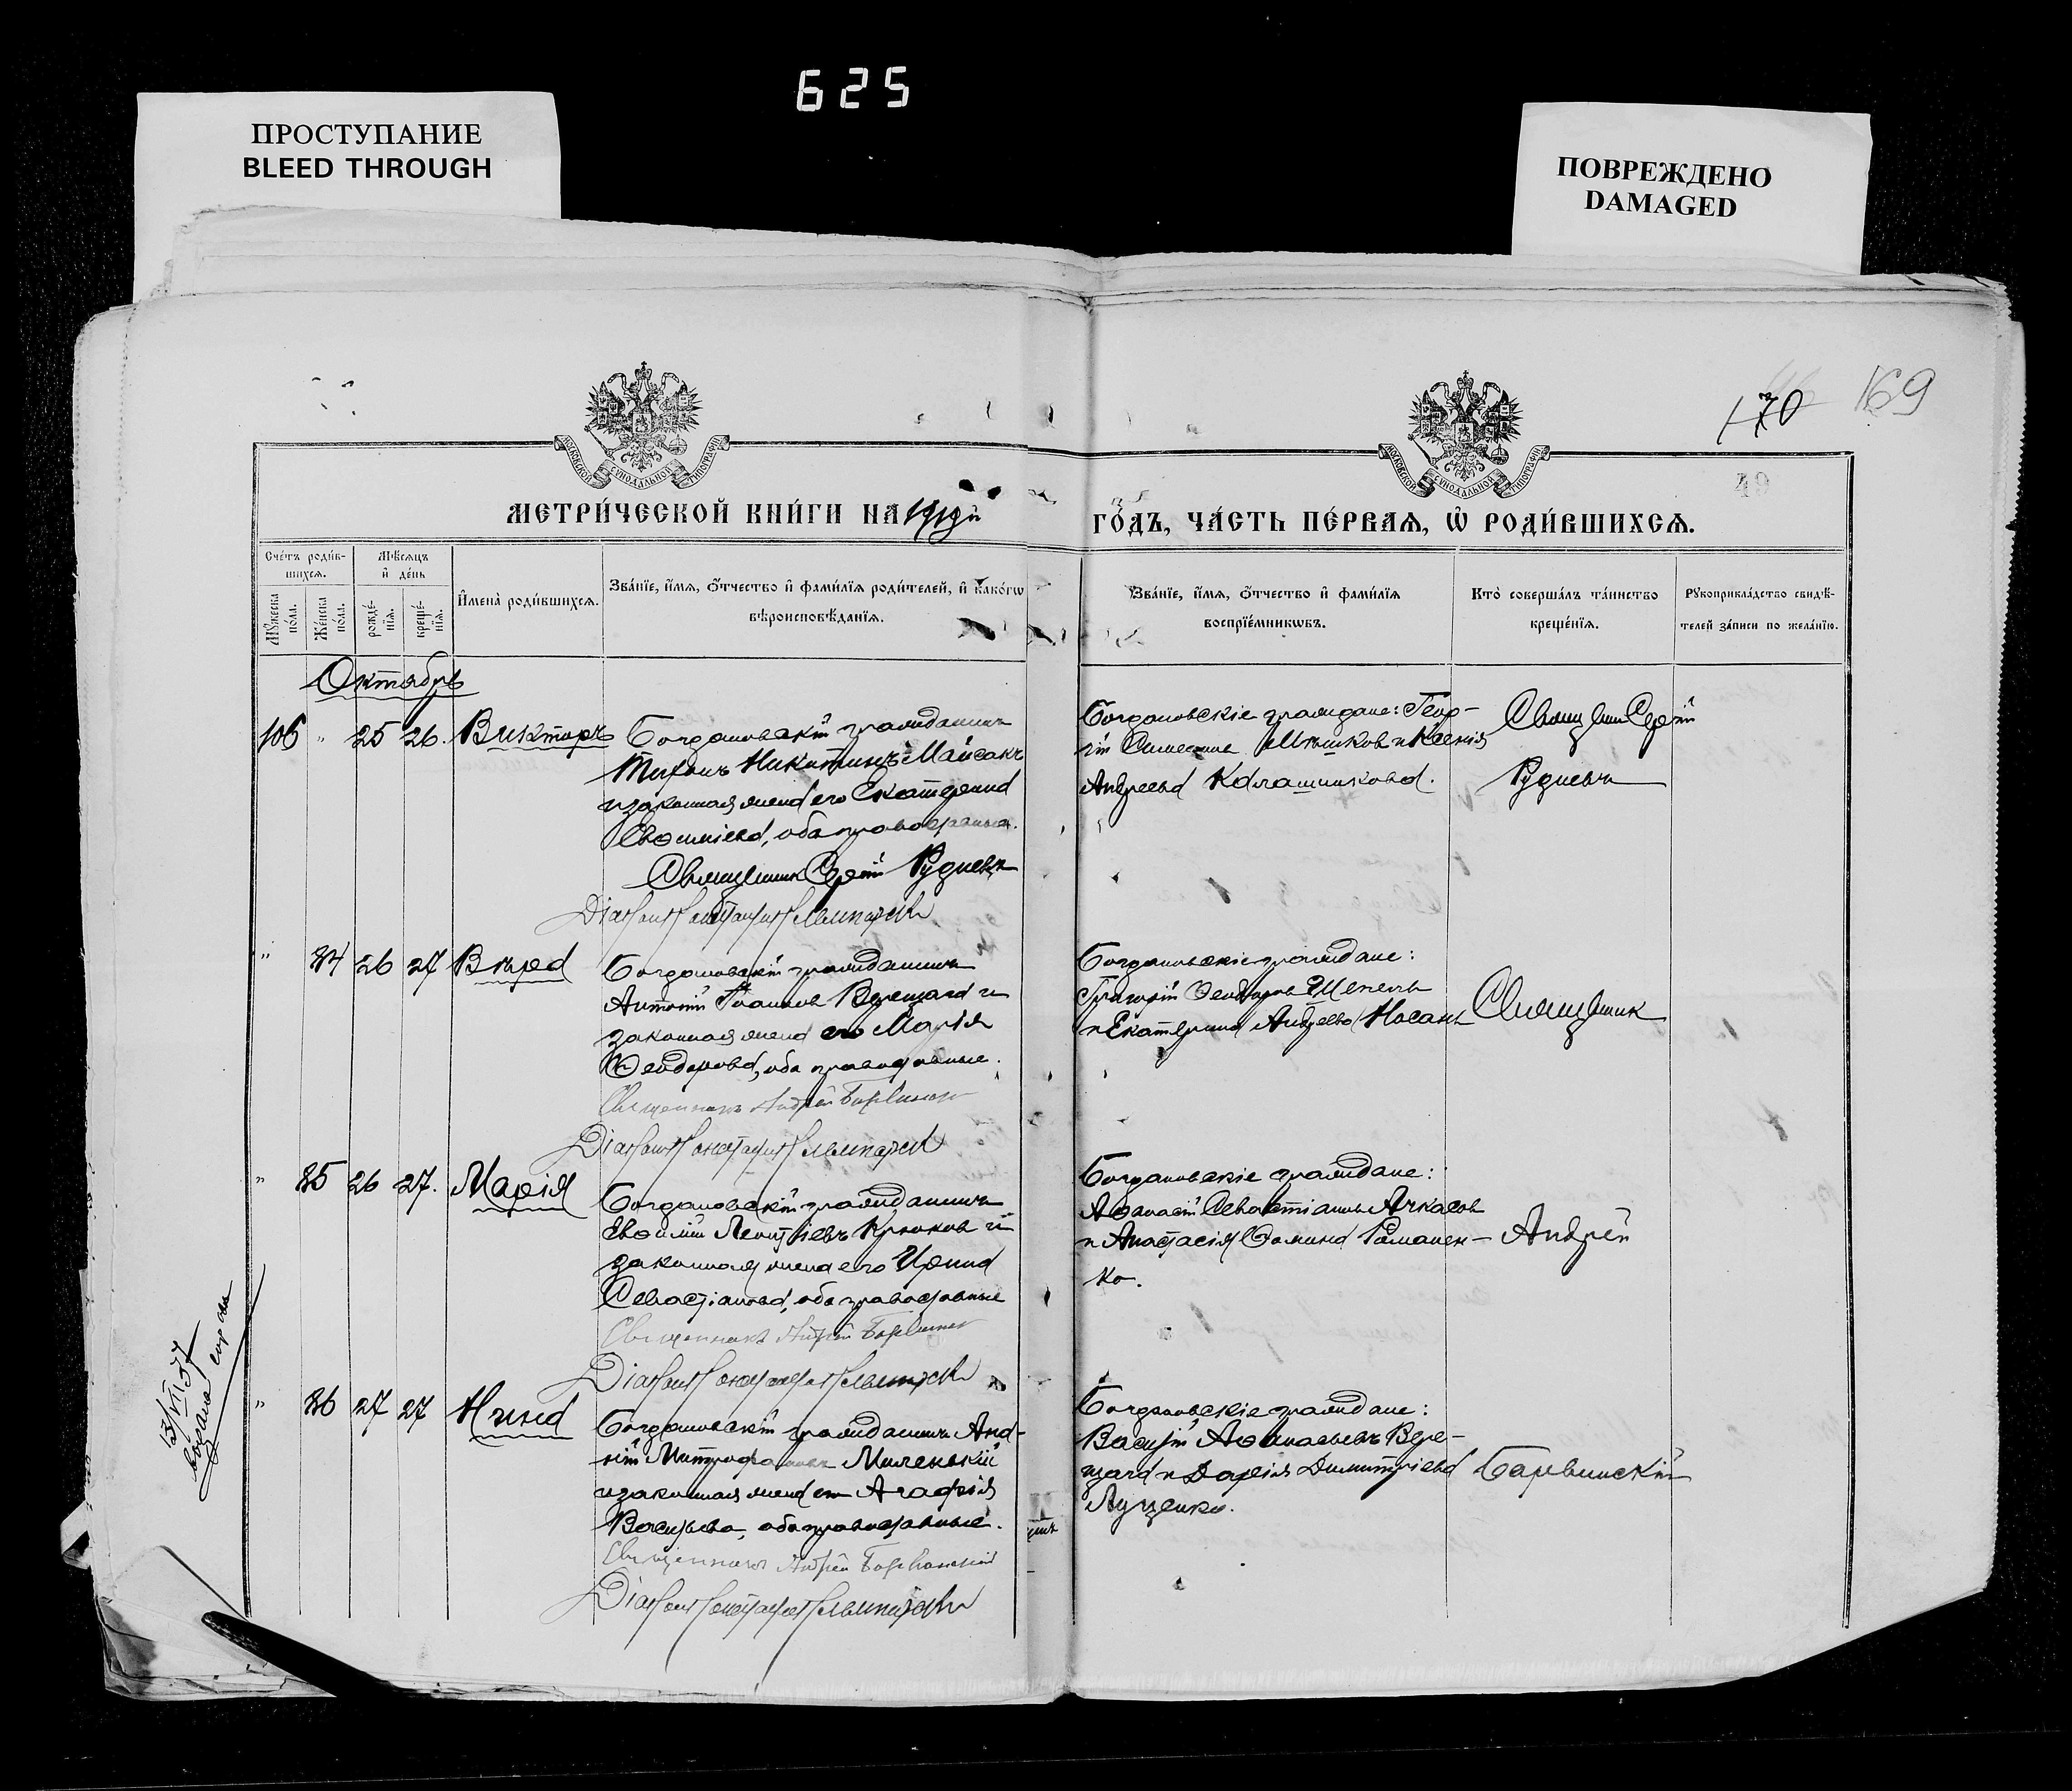 625
ПРОСТУПАНИЕ
BLEED THROUGH
ПОВРЕЖДЕНО
DAMAGED
170
169
49
МОСКОВСКОЙ СѴНОДАЛЬНОЙ ТИПОГРАФІИ
МОСКОВСКОЙ СѴНОДАЛЬНОЙ ТИПОГРАФІИ
МЕТРИ́ЧЕСКОЙ КНИ́ГИ НА 1919й
ГО́ДЪ, ЧА́СТЬ ПЕ́РВАѦ, Ѡ҆ РОДИ́ВШИХСѦ.
Сче́тъ роди́в-
шихсѧ.
Мѣ́сѧцъ
и҆ де́нь
Мꙋ́жеска
по́ла.
Же́нска
по́ла.
рожде́-
нїѧ.
креще́-
нїѧ.
И҆мена̀ роди́вшихсѧ.
Зва́нїе, и҆́мѧ, ѻ҆́тчество и҆ фами́лїѧ роди́телей, и҆ како́гѡ
вѣроисповѣ́данїѧ.
Зва́нїе, и҆́мѧ, ѻ҆́тчество и҆ фами́лїѧ
воспрїе́мникѡвъ.
Кто̀ соверша́лъ та́инство
креще́нїѧ.
Рꙋкоприкла́дство свидѣ́-
телей за́писи по жела́нїю.
Октябрь
106 " 25 26. Викторъ
Богдановскій гражданинъ
Тихонъ Никитинъ Майсакъ
и законная жена его Екатерина
Евѳиміева, оба православные.
Священникъ Сергій Рудневъ
Богдановскіе граждане: Геор-
гій Мѣшков и Ксенія
Андреева Калашникова.
Священ Сергій
Рудневъ
" 84 26 27 Вѣра
Богдановскій гражданинъ
Антоній Іоаннов Верещага и
законная жена его Марія
Ѳеодорова, оба православные.
Священникъ Андрей Барвинскій
Богдановскіе граждане:
Григорій Ѳеодоров Щепель
и Екатерина Андреева Носань
Священник
" 85 26 27. Марія
Богдановскій гражданинъ
Евѳимій Леонтіевъ Крюков и
законная жена его Ирина
Севастіанова, оба православные
Священникъ Андрей Барвинскій
Богдановскіе граждане:
Аѳанасій Севастіанов Ачкасов
и Анастасія Ѳомина Романен-
ко.
Андрей
" 86 27 27 Нина
Богдановскій гражданинъ Анд-
рій Митрофанов Миленькій
и законная жена его Агафія
Васильева, оба православные.
Священникъ Андрей Барвинскій
Богдановскіе граждане:
Василій Аѳанасьевъ Вере-
щага и Дарія Димитріева
Луценко.
Барвинскій
13/VI 57